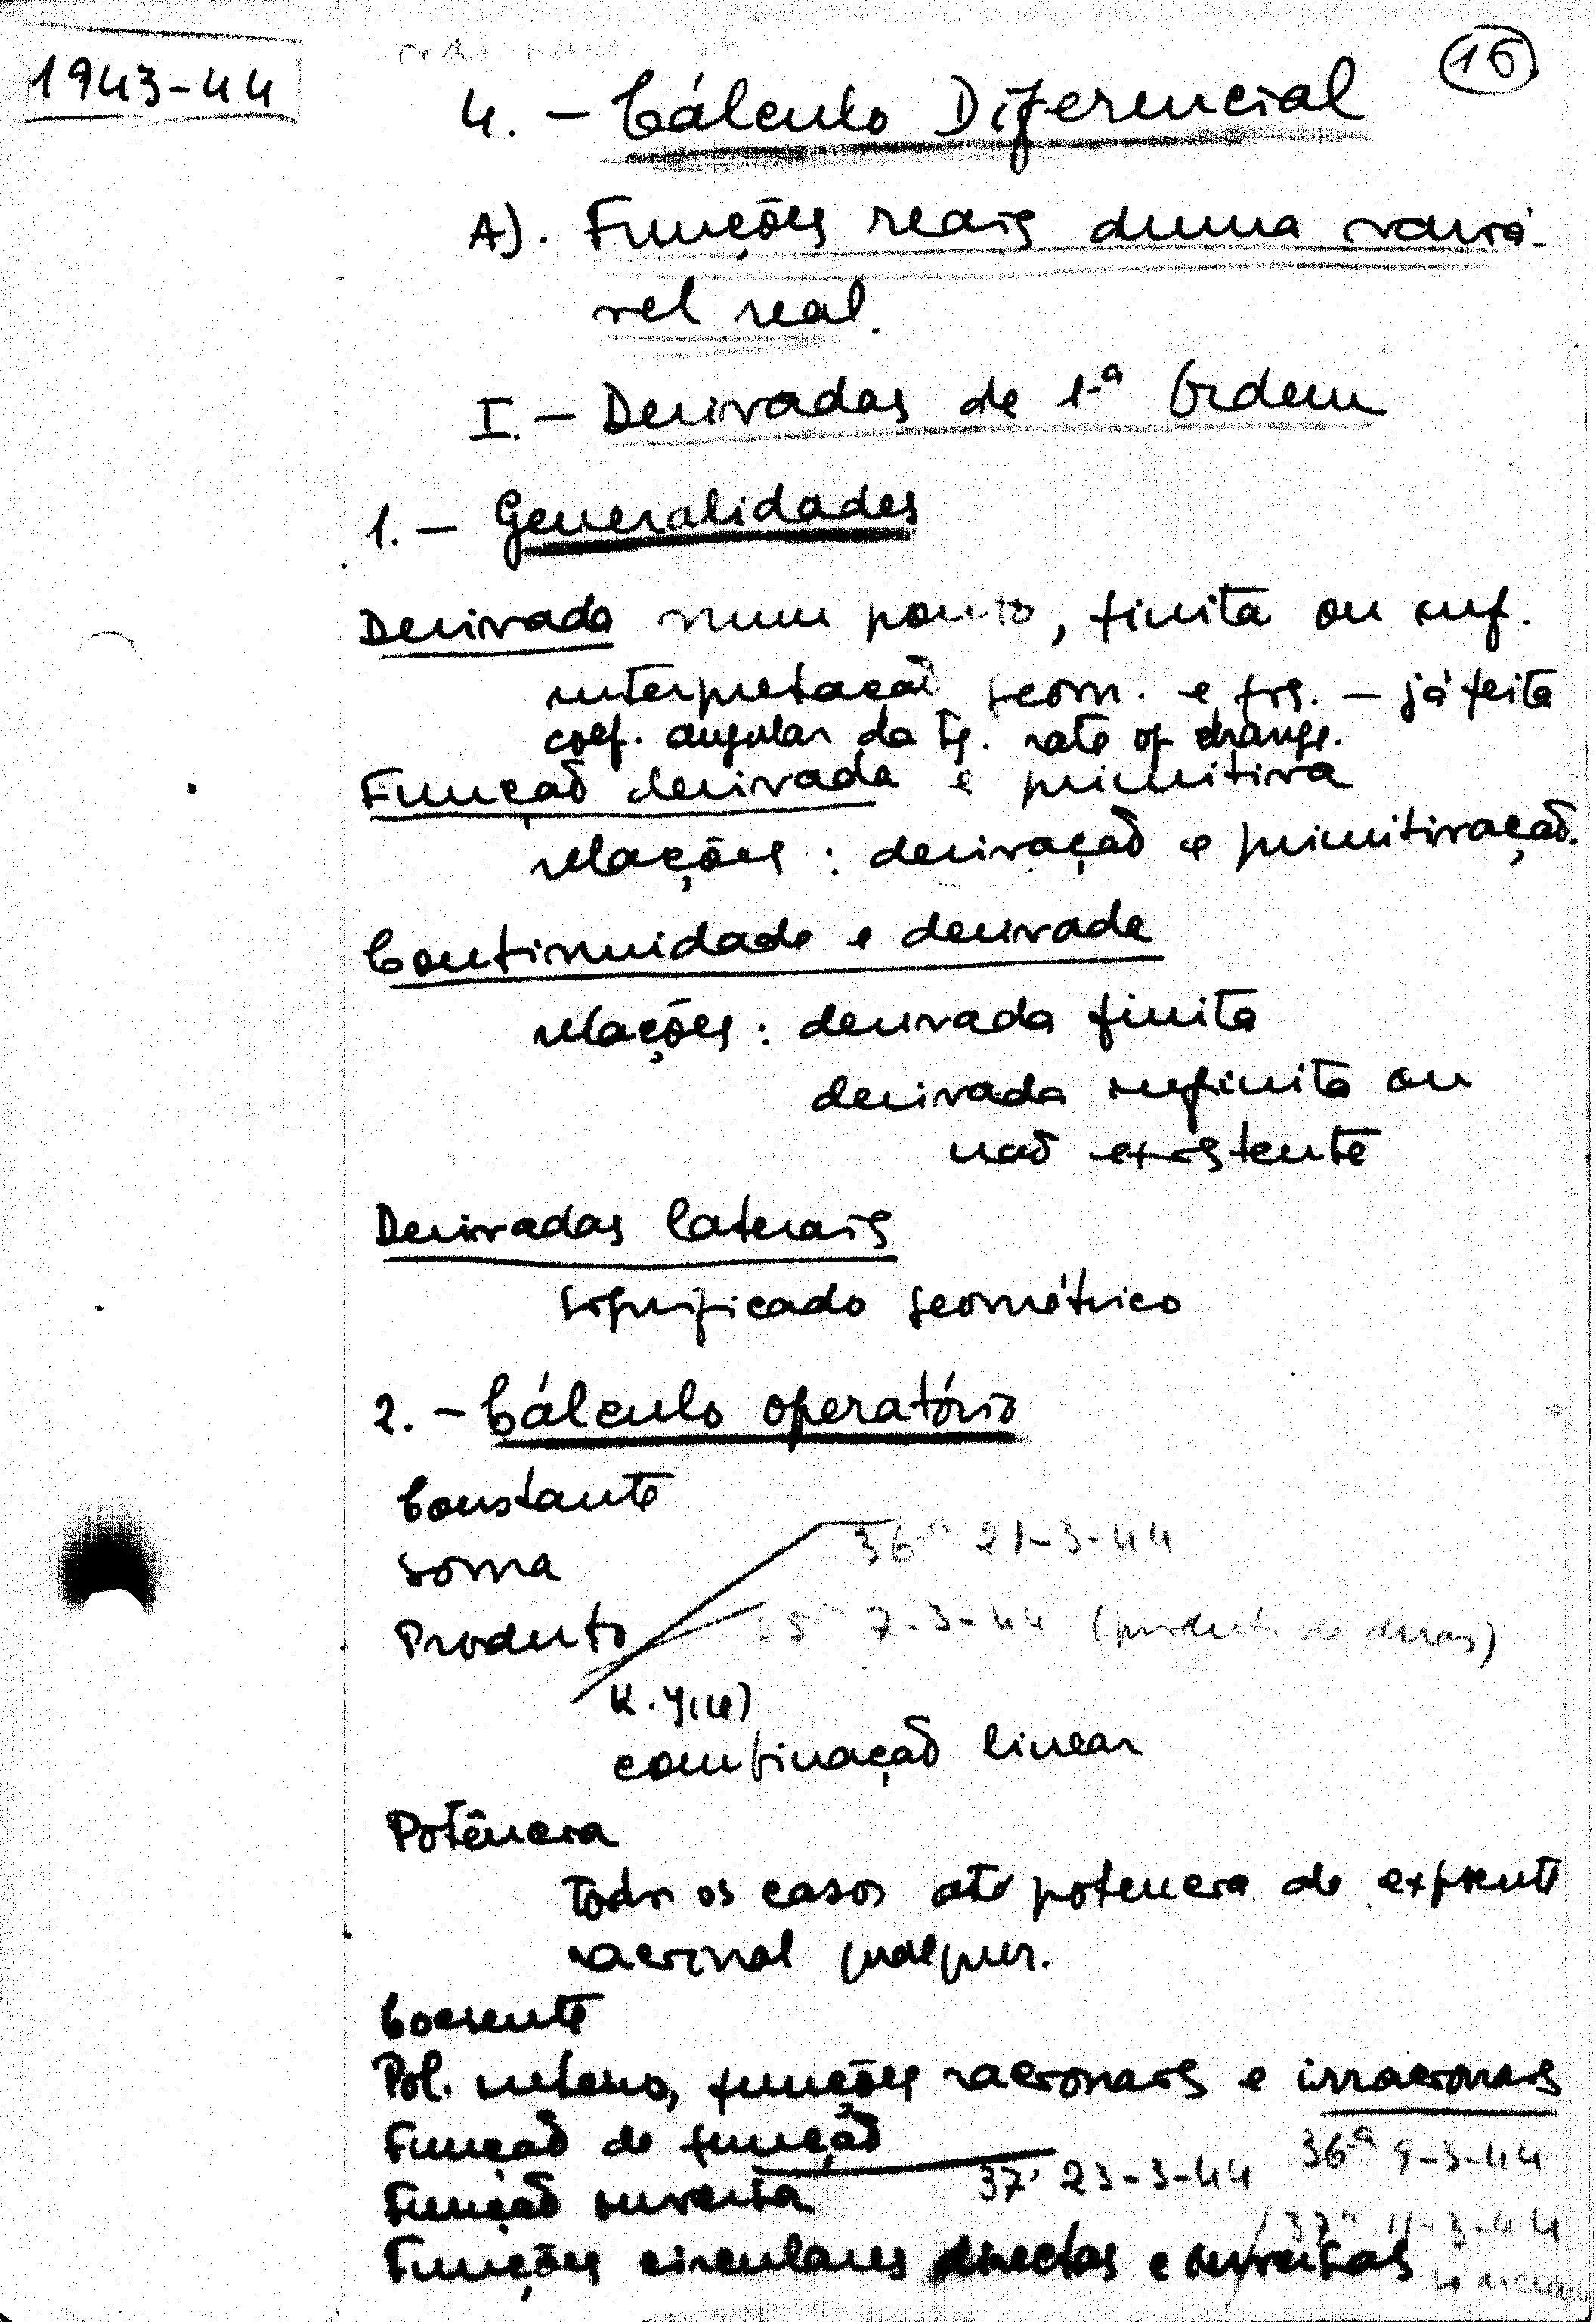 1943-44
16
4. — Cálculo Diferencial
A). Funções reais duma variá-
vel real.
I. — Derivadas de 1.ª Ordem
1. — Generalidades
Derivada num ponto, finita ou inf.
interpretação geom. e fís. — já feita
coef. angular da tg. rate of change.
Função derivada e primitiva
relações : derivação e primitivação.
Continuidade e derivada
relações : derivada finita
derivada infinita ou
não existente
Derivadas laterais
significado geométrico
2. — Cálculo operatório
Constante
36.ª 21-3-44
Soma
Produto
7-3-44 (produto de duas)
K. y(x)
combinação linear
Potência
Todos os casos até potencia de expoente
racional qualquer.
Cociente
Pol. inteiro, funções racionais e irracionais
Função de função
36.ª 9-3-44
37ª 23-3-44
Função inversa
37ª 11-3-44
Funções circulares directas e inversas